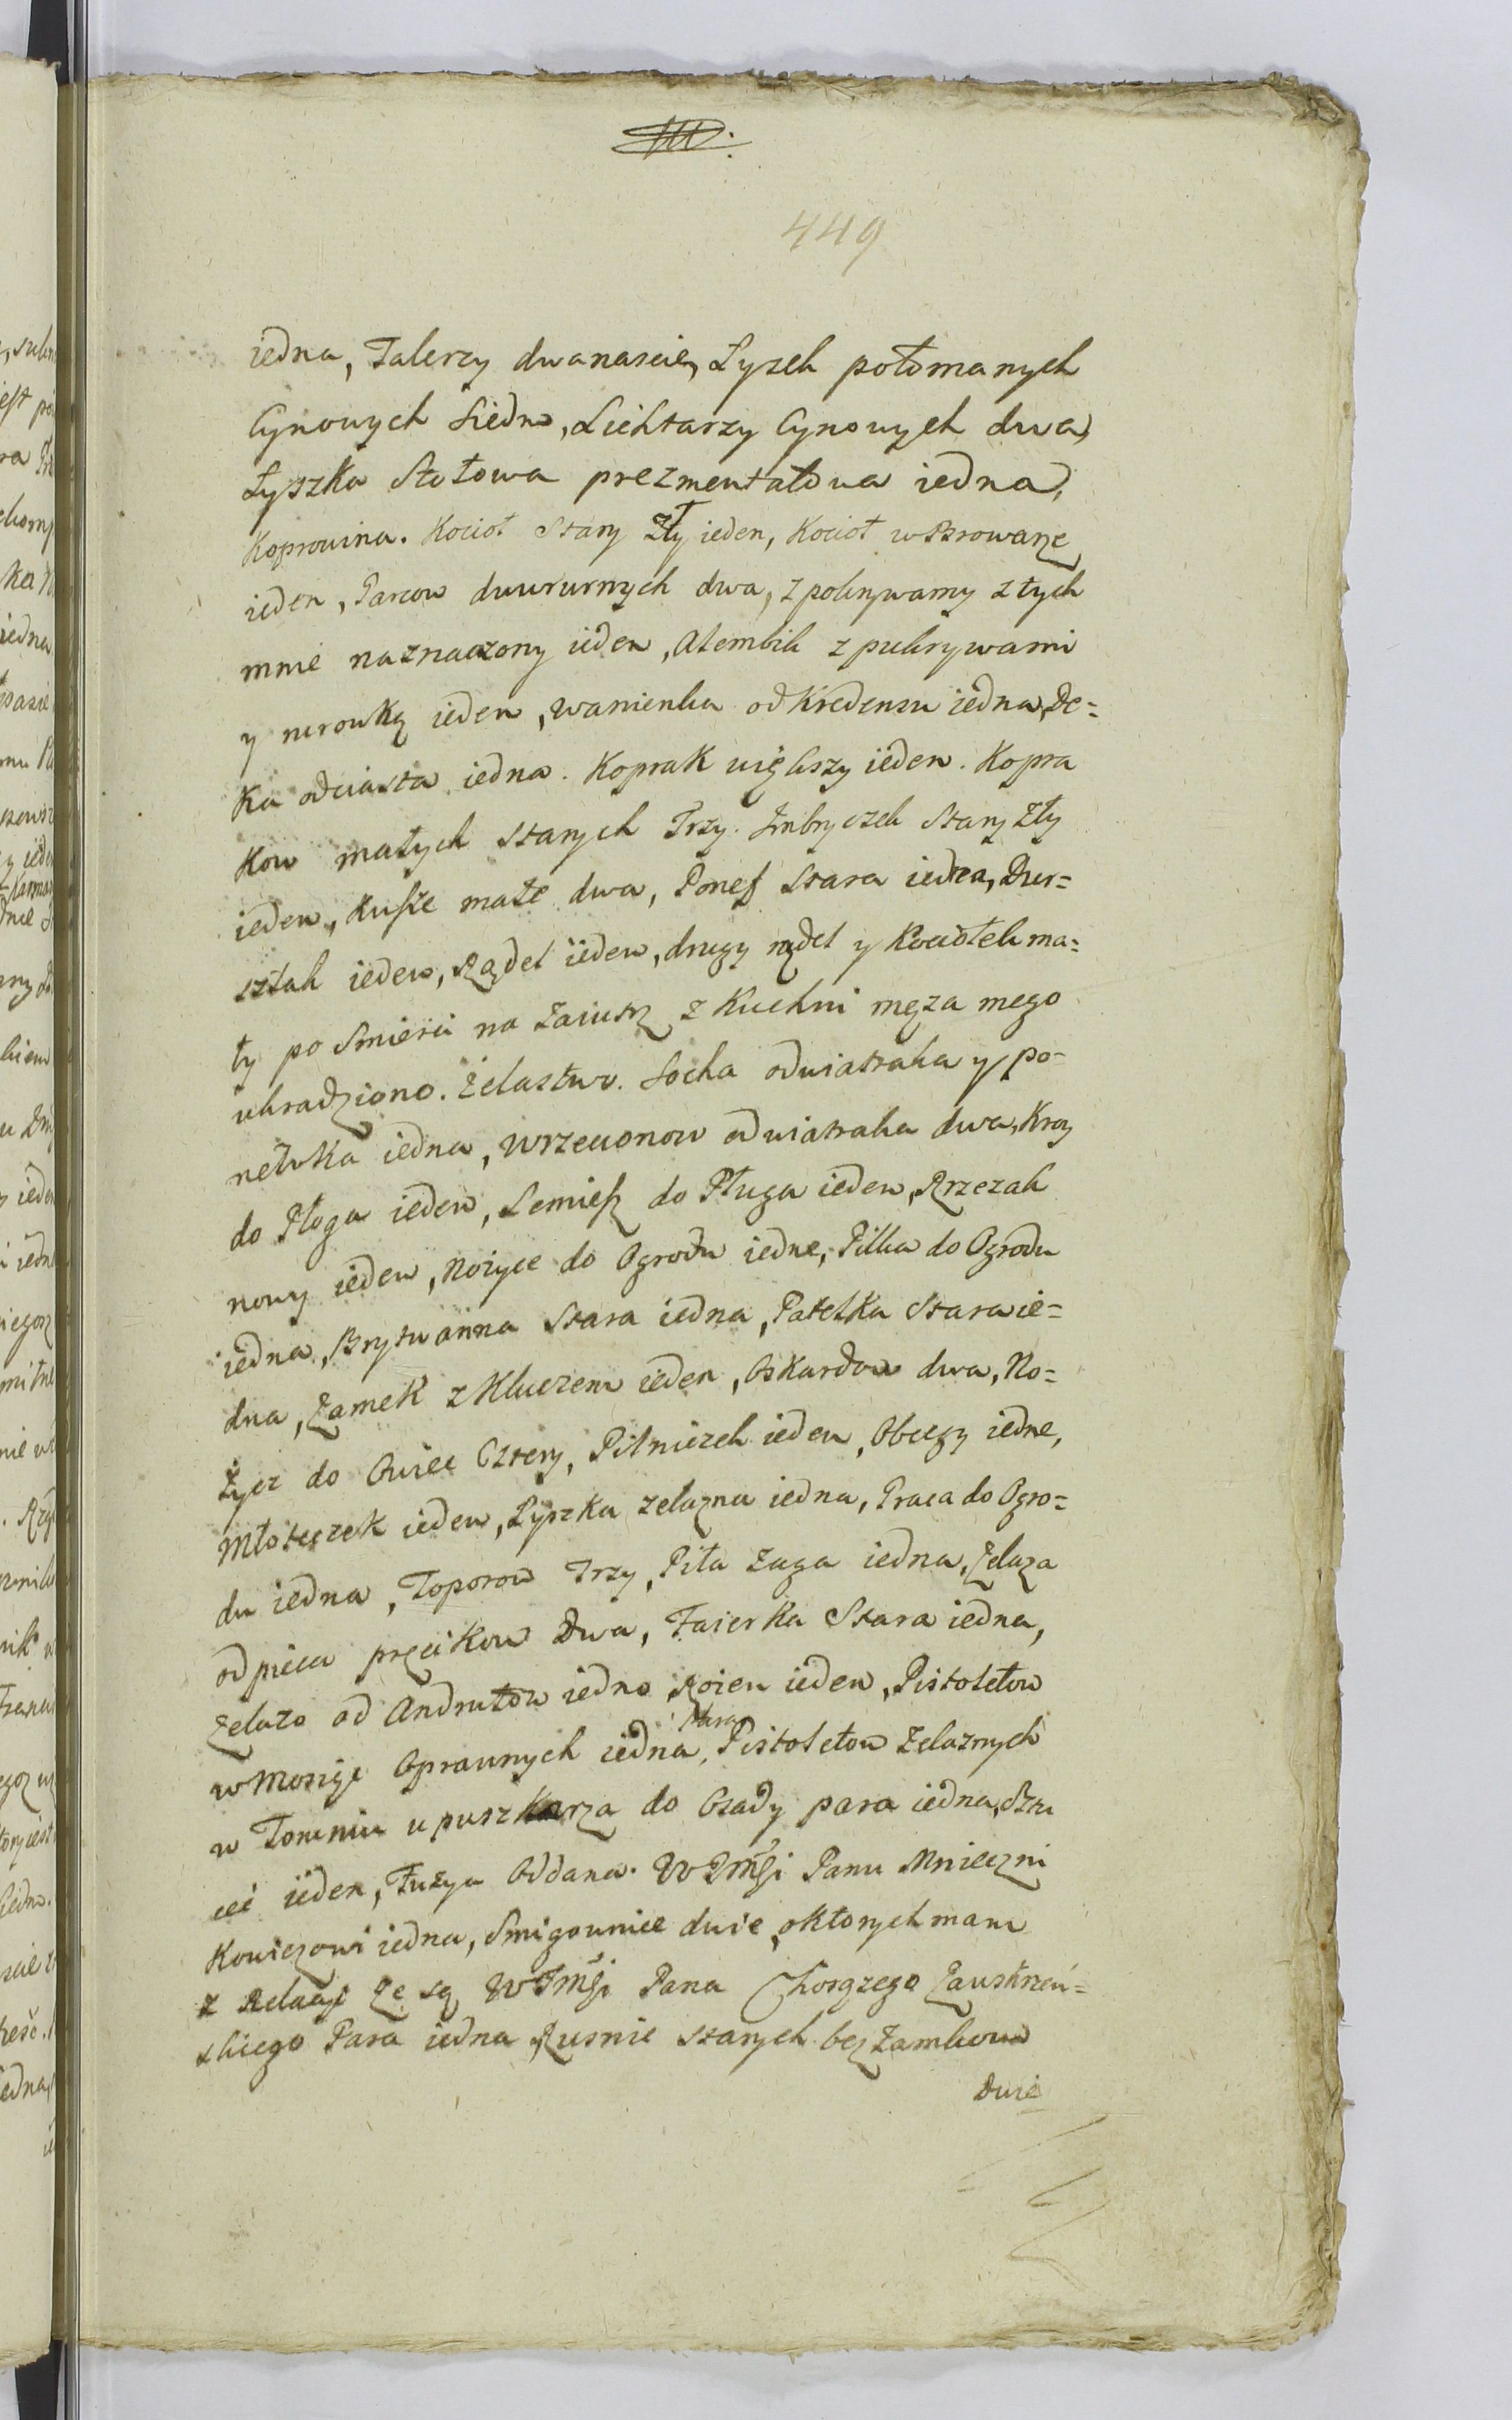 449
iedna, Talerzy dwanascie, Łyzek połomanych
Cynowych Siedm, Lichtarzy Cynowych dwa,
Łyszka Stołowa prezmentalowa iedna,
Koprowina. Kocioł Stary Zły ieden, Kocioł w Browarze
ieden, Garcow dwururnych dwa, z pokrywamy z tych
mnie naznaczony ieden, Alembik z pukrywami
y rurowką ieden, Wanienka od Kredensu iedna, De=
ka od ciasta iedna. Koprak większy ieden. Kopra
kow małych Starych Trzy. Imbryczek Stary Zły
ieden, Kufle małe dwa, Ponef Stara iedna, Dur=
sztak ieden, Rądel ieden, drugy rądel y Kociołek ma=
ły po Smierci na Zaiutrz z Kuchni męza mego
ukradziono. Zelastwo. Socha od wiatraka y po=
netwka iedna, Wrzecionow od wiatraka dwa, Kroy
do Pługa ieden, Lemiesz do Pługa ieden, Rzezak
nowy ieden, Nożyce do Ogrodu iedne, Pilka do Ogrodu
iedna, Brytwanna Stara iedna, Patelka Stara ie=
dna, Zamek z Kluczem ieden, Oskardow dwa, No=
życz do Owiec Cztery, Pilniczek ieden, Obcęgy iedne,
Młoteczek ieden, Łyszka zelazna iedna, Praca do Ogro=
du iedna, Toporow Trzy, Piła Zaga iedna, Zelaza
od pieca pręcikow Dwa, Faierka Stara iedna,
Zelazo od Andrutow iedno, Rożen ieden, Pistoletow
w Mosiąc Oprawnych iedna Para, Pistoletow Zelaznych
w Toruniu u puszkarza do Osady para iedna, Sztu
ciec ieden, Fuzya Oddana. W JMći Panu Mnieczni
Kowiczowi iedna, Smigownice dwie, o Ktorych mam
z Relacyi Ze są W JMći Pana Chorązego Zauskrzeń=
skiego Para iedna Rusnic Starych bez Zamkow
Dwie